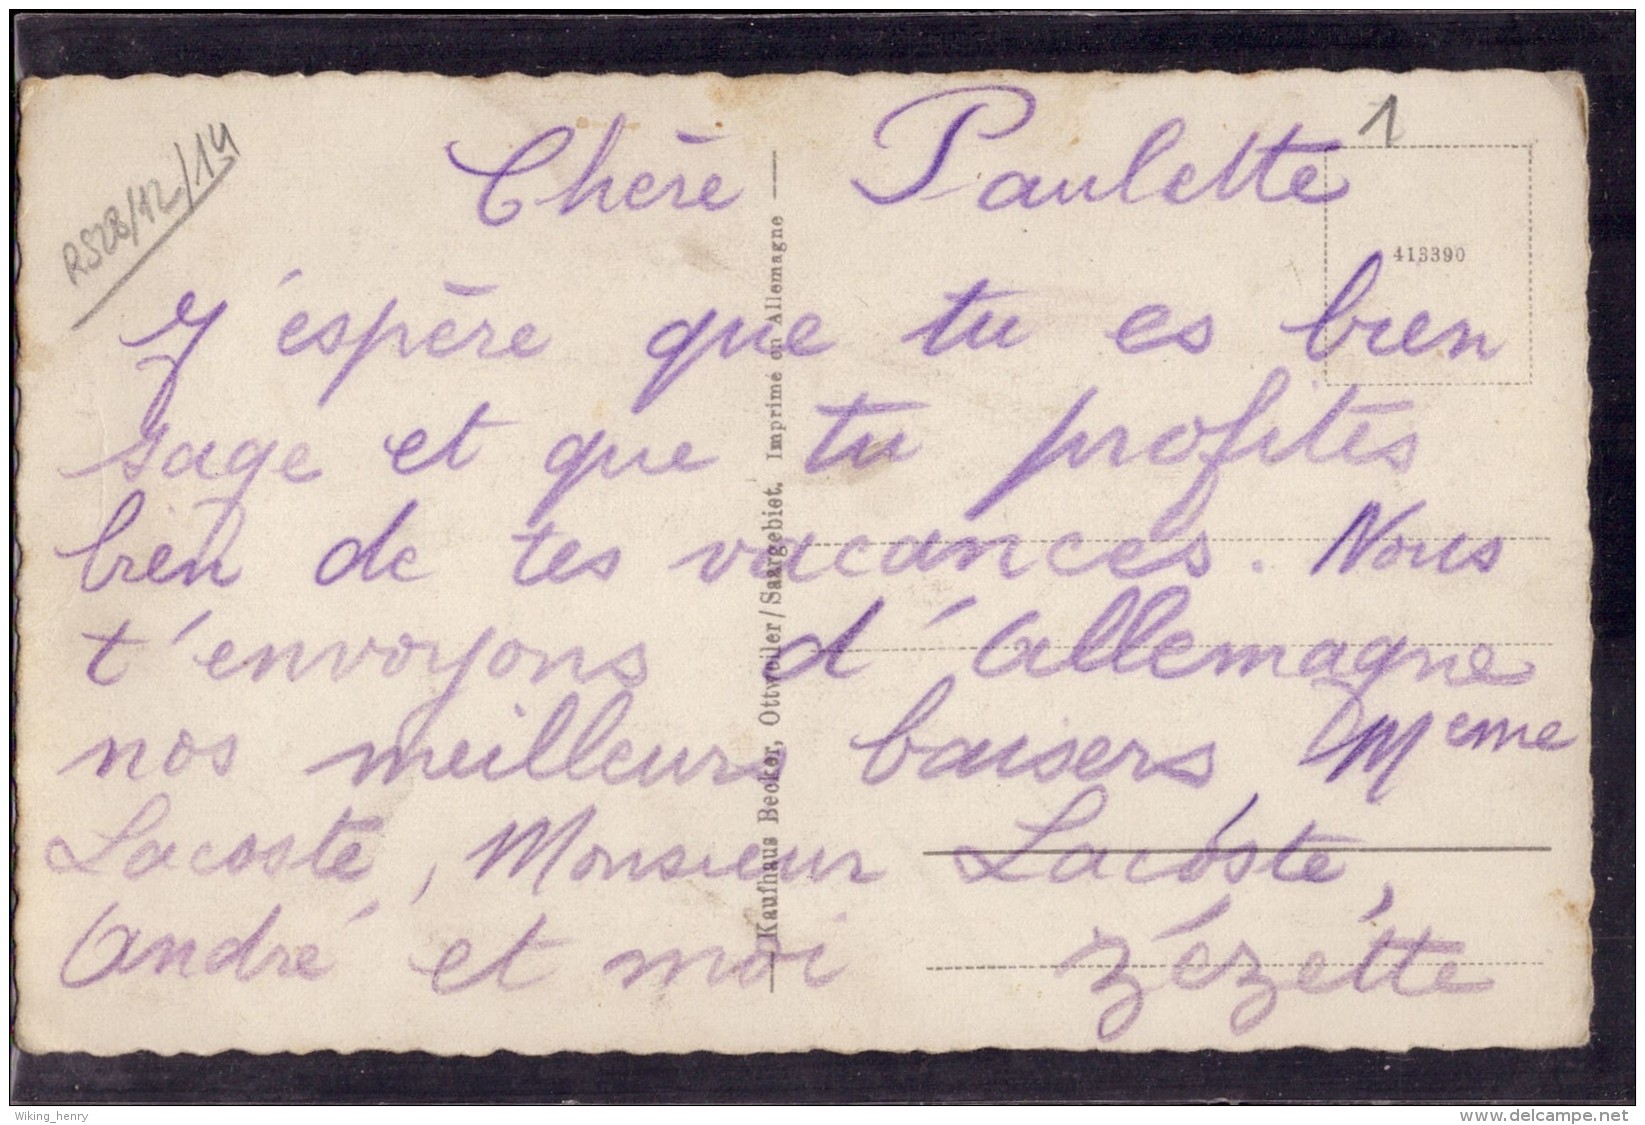 RS28/12/14
1
Chère Paulette
413390
J'éspère que tu es bien
sage et que tu profites
bien de tes vacances. Nous
t'envoyons d'Allemagne
nos meilleurs baisers Mème
Lacoste, Monsieur Lacoste,
André et moi Zézétte
Kaufhaus Becker, Ottweiler/Saargebiet. Imprimé en Allemagne
Wiking_henry
www.delcampe.net